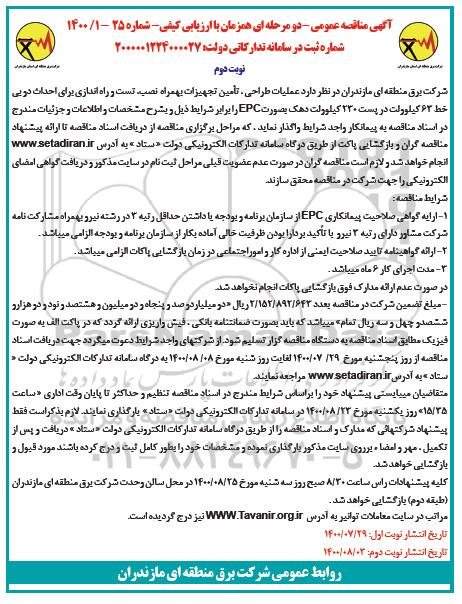 آگهی مناقصه عمومی - دو مرحله ای همزمان با ارزیابی کیفی - شماره ۲۵ - ۱۴۰۰/۱
شماره ثبت در سامانه تدارکاتی دولت: ۲۰۰۰۰۰۱۲۲۴۰۰۰۰۲۷
نوبت دوم
شرکت برق منطقه ای مازندران در نظر دارد عملیات طراحی ، تأمین تجهیزات بهمراه نصب، تست و راه اندازی برای احداث دو بی
خط ۶۳ کیلوولت در پست ۲۳۰ کیلوولت دهک بصورت EPC را برابر شرایط ذیل و بشرح مشخصات و اطلاعات و جزئیات مندرج
در اسناد مناقصه به پیمانکار واجد شرایط واگذار نماید . که مراحل برگزاری مناقصه از دریافت اسناد مناقصه تا ارائه پیشنهاد
مناقصه گران و بازگشایی پاکت از طریق درگاه سامانه تدارکات الکترونیکی دولت « ستاد » به آدرس www.setadiran.ir
انجام خواهد شد و لازم است مناقصه گران در صورت عدم عضویت قبلی مراحل ثبت نام در سایت مذکور و دریافت گواهی امضای
الکترونیکی را جهت شرکت در مناقصه محقق سازند.
شرایط مناقصه:
۱- ارایه گواهی صلاحیت پیمانکاری EPC از سازمان برنامه و بودجه یا داشتن حداقل رتبه ۳ در رشته نیرو بهمراه مشارکت نامه
شرکت مشاور دارای رتبه ۳ نیرو با تأکید بر دارا بودن ظرفیت خالی آماده بکار از سازمان برنامه و بودجه الزامی میباشد .
۲- ارائه گواهینامه تایید صلاحیت ایمنی از اداره کار و امور اجتماعی در زمان بازگشایی پاکات الزامی میباشد .
۳- مدت اجرای کار ۶ ماه میباشد .
در صورت عدم ارائه مدارک فوق بازگشایی پاکات انجام نخواهد شد.
- مبلغ تضمین شرکت در مناقصه بعدد ۲/۱۵۲/۸۹۲/۶۴۳ ریال «دو میلیارد و صد و پنجاه و دو میلیون و هشتصد و نود و دو هزار و
ششصد و چهل و سه ریال تمام» میباشد که باید بصورت ضمانتنامه بانکی ، فیش واریزی ارائه گردد که در پاکت الف به صورت
فیزیک مطابق اسناد مناقصه به دستگاه مناقصه گزار تسلیم شود. از شرکتهای واجد شرایط دعوت میگردد جهت دریافت اسناد
مناقصه از روز پنجشنبه مورخ ۱۴۰۰/۰۷/۲۹ لغایت روز شنبه مورخ ۱۴۰۰/۰۸/۰۸ به درگاه سامانه تدارکات الکترونیکی دولت «
ستاد » به آدرس www.setadiran.ir مراجعه نمایند.
متقاضیان میبایستی پیشنهاد خود را براساس شرایط مندرج در اسناد مناقصه تنظیم و حداکثر تا پایان وقت اداری «ساعت
۱۵/۲۵» روز یکشنبه مورخ ۱۴۰۰/۰۸/۲۳ در سامانه تدارکات الکترونیکی دولت «ستاد » بارگذاری نمایند. لازم بذکر است فقط
پیشنهاد شرکتهائی که مدارک و اسناد مناقصه را از طریق درگاه سامانه تدارکات الکترونیکی دولت «ستاد » دریافت و پس از
تکمیل ، مهر و امضا ، برروی سایت مذکور بارگذاری نموده و مشخصات خود را بطور کامل ثبت و درج کرده باشند مورد قبول و
بازگشایی خواهد شد.
کلیه پیشنهادات راس ساعت ۸/۳۰ صبح روز سه شنبه مورخ ۱۴۰۰/۰۸/۲۵ در محل سالن وحدت شرکت برق منطقه ای مازندران
(طبقه دوم) بازگشایی خواهد شد .
مراتب در سایت معاملات توانیر به آدرس WWW.Tavanir.org.ir نیز درج گردیده است.
تاریخ انتشار نوبت اول: ۱۴۰۰/۰۷/۲۹
تاریخ انتشار نوبت دوم: ۱۴۰۰/۰۸/۰۳
روابط عمومی شرکت برق منطقه ای مازندران